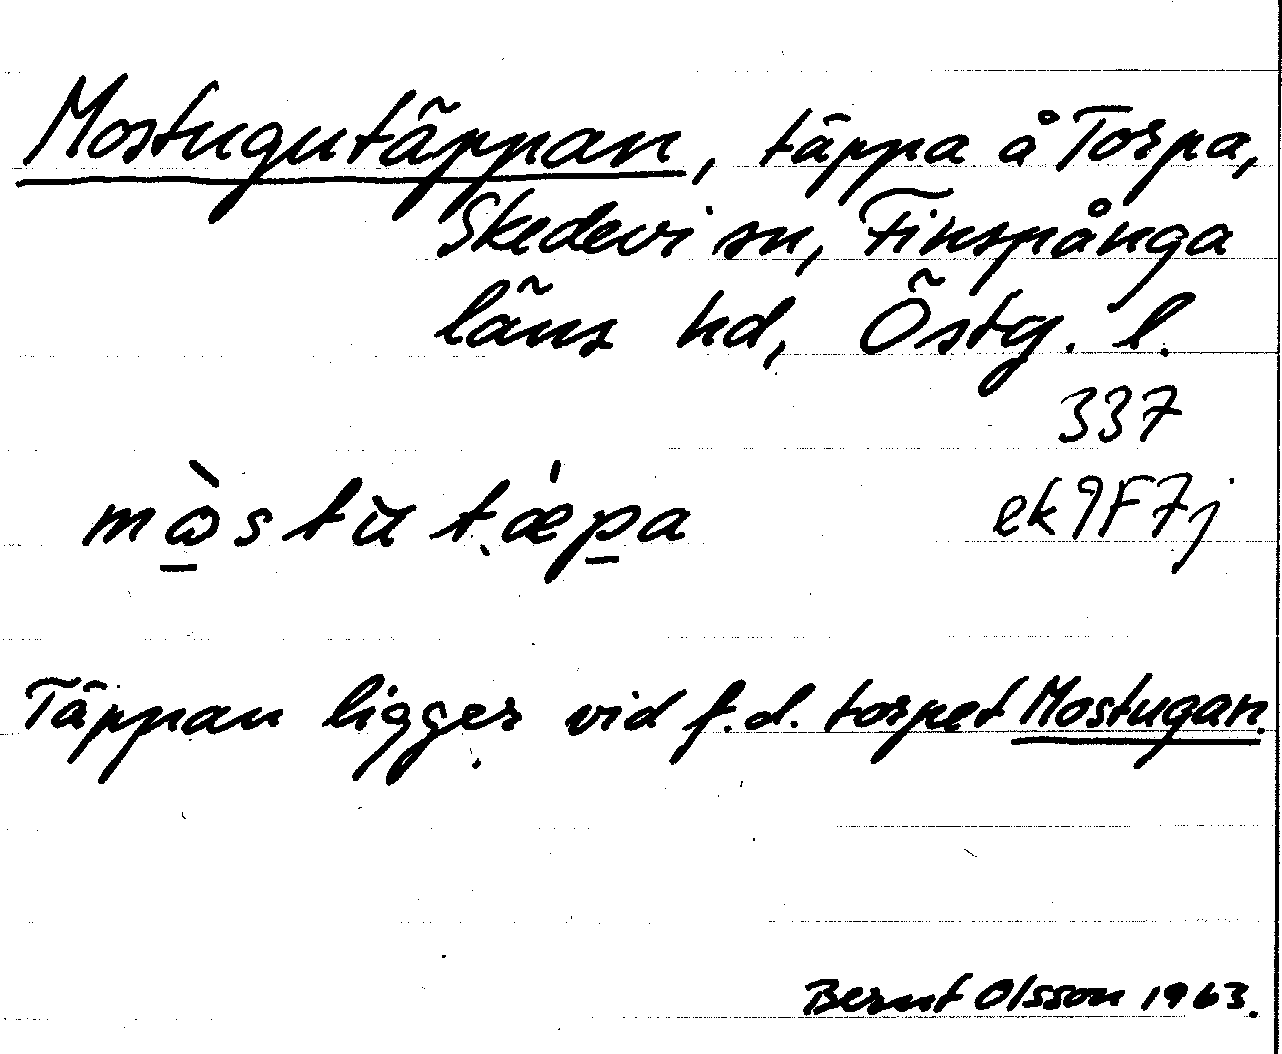 Mostugutäppan, täppa å Torpa,
Skedevi sn, Finspånga
läns hd, Östg. l.
337
ek9F7j
Täppan ligger vid f.d. torpet Mostugan.
Bernt Olsson 1963.